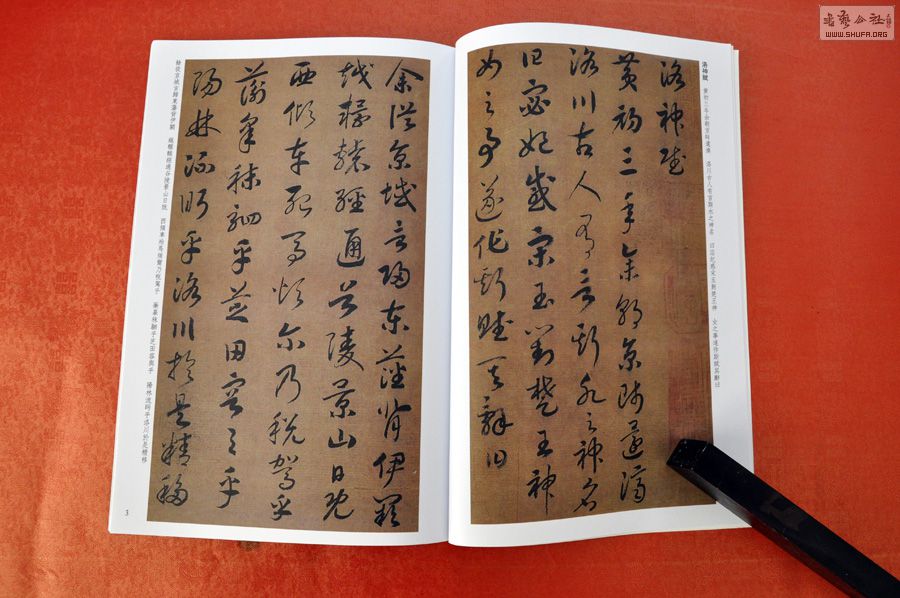 書藝公社
WWW.SHUFA.ORG
洛神賦 黄初三年余朝京師還濟 洛川古人有言斯水之神名 曰宓妃感宋玉對楚王神 女之事遂作斯賦其辭曰
洛神賦
黄初三年余朝京師還濟
洛川古人有言斯水之神名
曰宓妃感宋玉對楚王神
女之事遂作斯賦其辭曰
余從京域言歸東藩背伊闕
越轘轅經通谷陵景山日既
西傾車殆馬煩爾乃税駕乎
蘅皋秣駟乎芝田容與乎
陽林流眄乎洛川於是精移
餘從京域言歸東藩背伊闕 越轘轅經通谷陵景山日既 西傾車殆馬煩爾乃税駕乎 蘅皋秣駟乎芝田容與乎 陽林流眄乎洛川於是精移
3